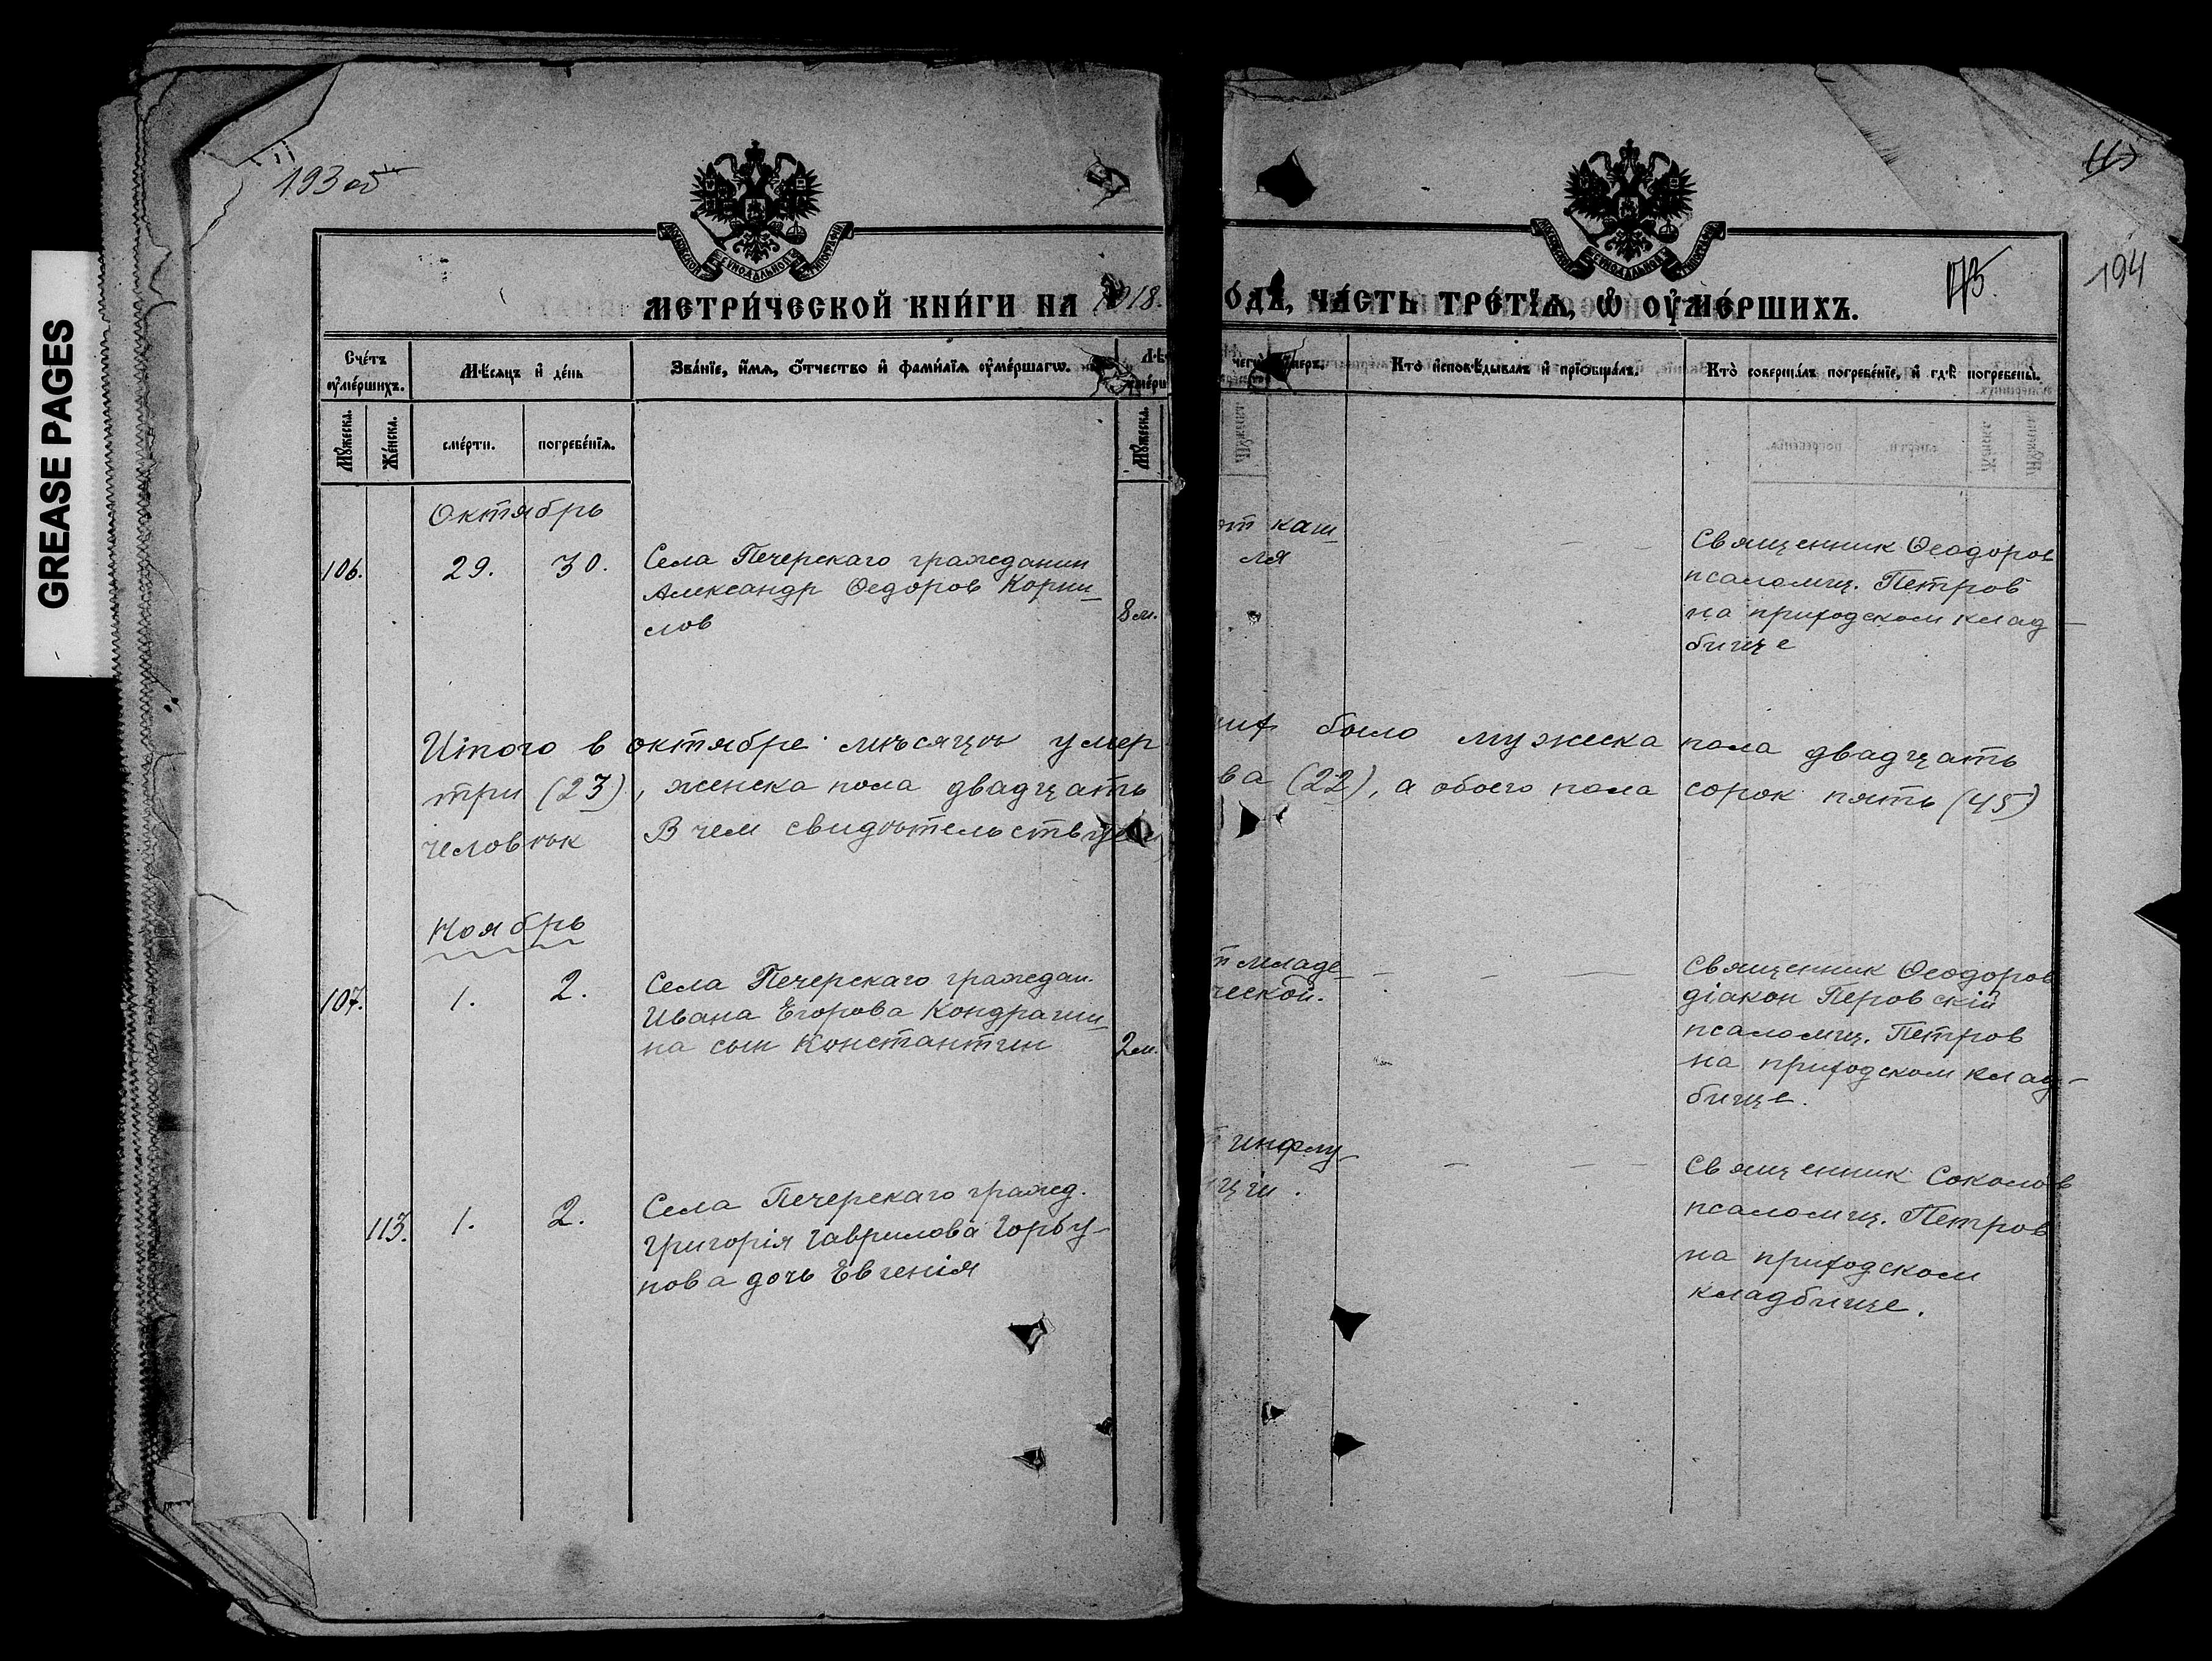 GREASE PAGES
193 об
194
МЕТРИ́ЧЕСКОЙ КНИ́ГИ НА 1918.
ОДА, ЧА́СТЬ ТРЕ́ТЇѦ, Ѡ ОУ҆МЕ́РШИХЪ.
Сче́тъ оу҆ме́ршихъ.
Мѣ́сѧцъ и҆ де́нь
Зва́нїе, и҆́мѧ, ѻ҆́тчество и҆ фами́лїѧ оу҆ме́ршагѡ.
Кто̀ и҆сповѣ́дывалъ и҆ прїѻбща́лъ.
Кто̀ соверша́лъ погребе́нїе, и҆ гдѣ̀ погребены̀.
Мꙋ́жеска.
Же́нска.
сме́рти.
погребе́нїѧ.
Мꙋ́жеска.
Октябрь
106.
29.
30.
Села Печерскаго гражданин
Александр Ѳедоров Корни_
лов
8 м.
от каш_
ля
Священник Ѳеодоров
псаломщ. Петров
на приходском клад_
бище
Итого в октябре мѣсяцѣ умер
ших было мужеска пола двадцать
три (23), женска пола двадцать
ва (22), а обоего пола сорок пять (45)
человѣк В чем свидѣтельствуем
Ноябрь
107.
1.
2.
Села Печерскаго граждан.
Ивана Егорова Кондраши_
на сын Константин
2 м.
т младе_
ческой.
Священник Ѳеодоров
діакон Перовскій
псаломщ. Петров
на приходском клад-
бище.
113.
1.
2.
Села Печерскаго гражд.
Григорія Гаврилова Горбу_
нова дочь Евгенія
инфлу_
нціи.
Священник Соколов
псаломщ. Петров
на приходском
кладбище.